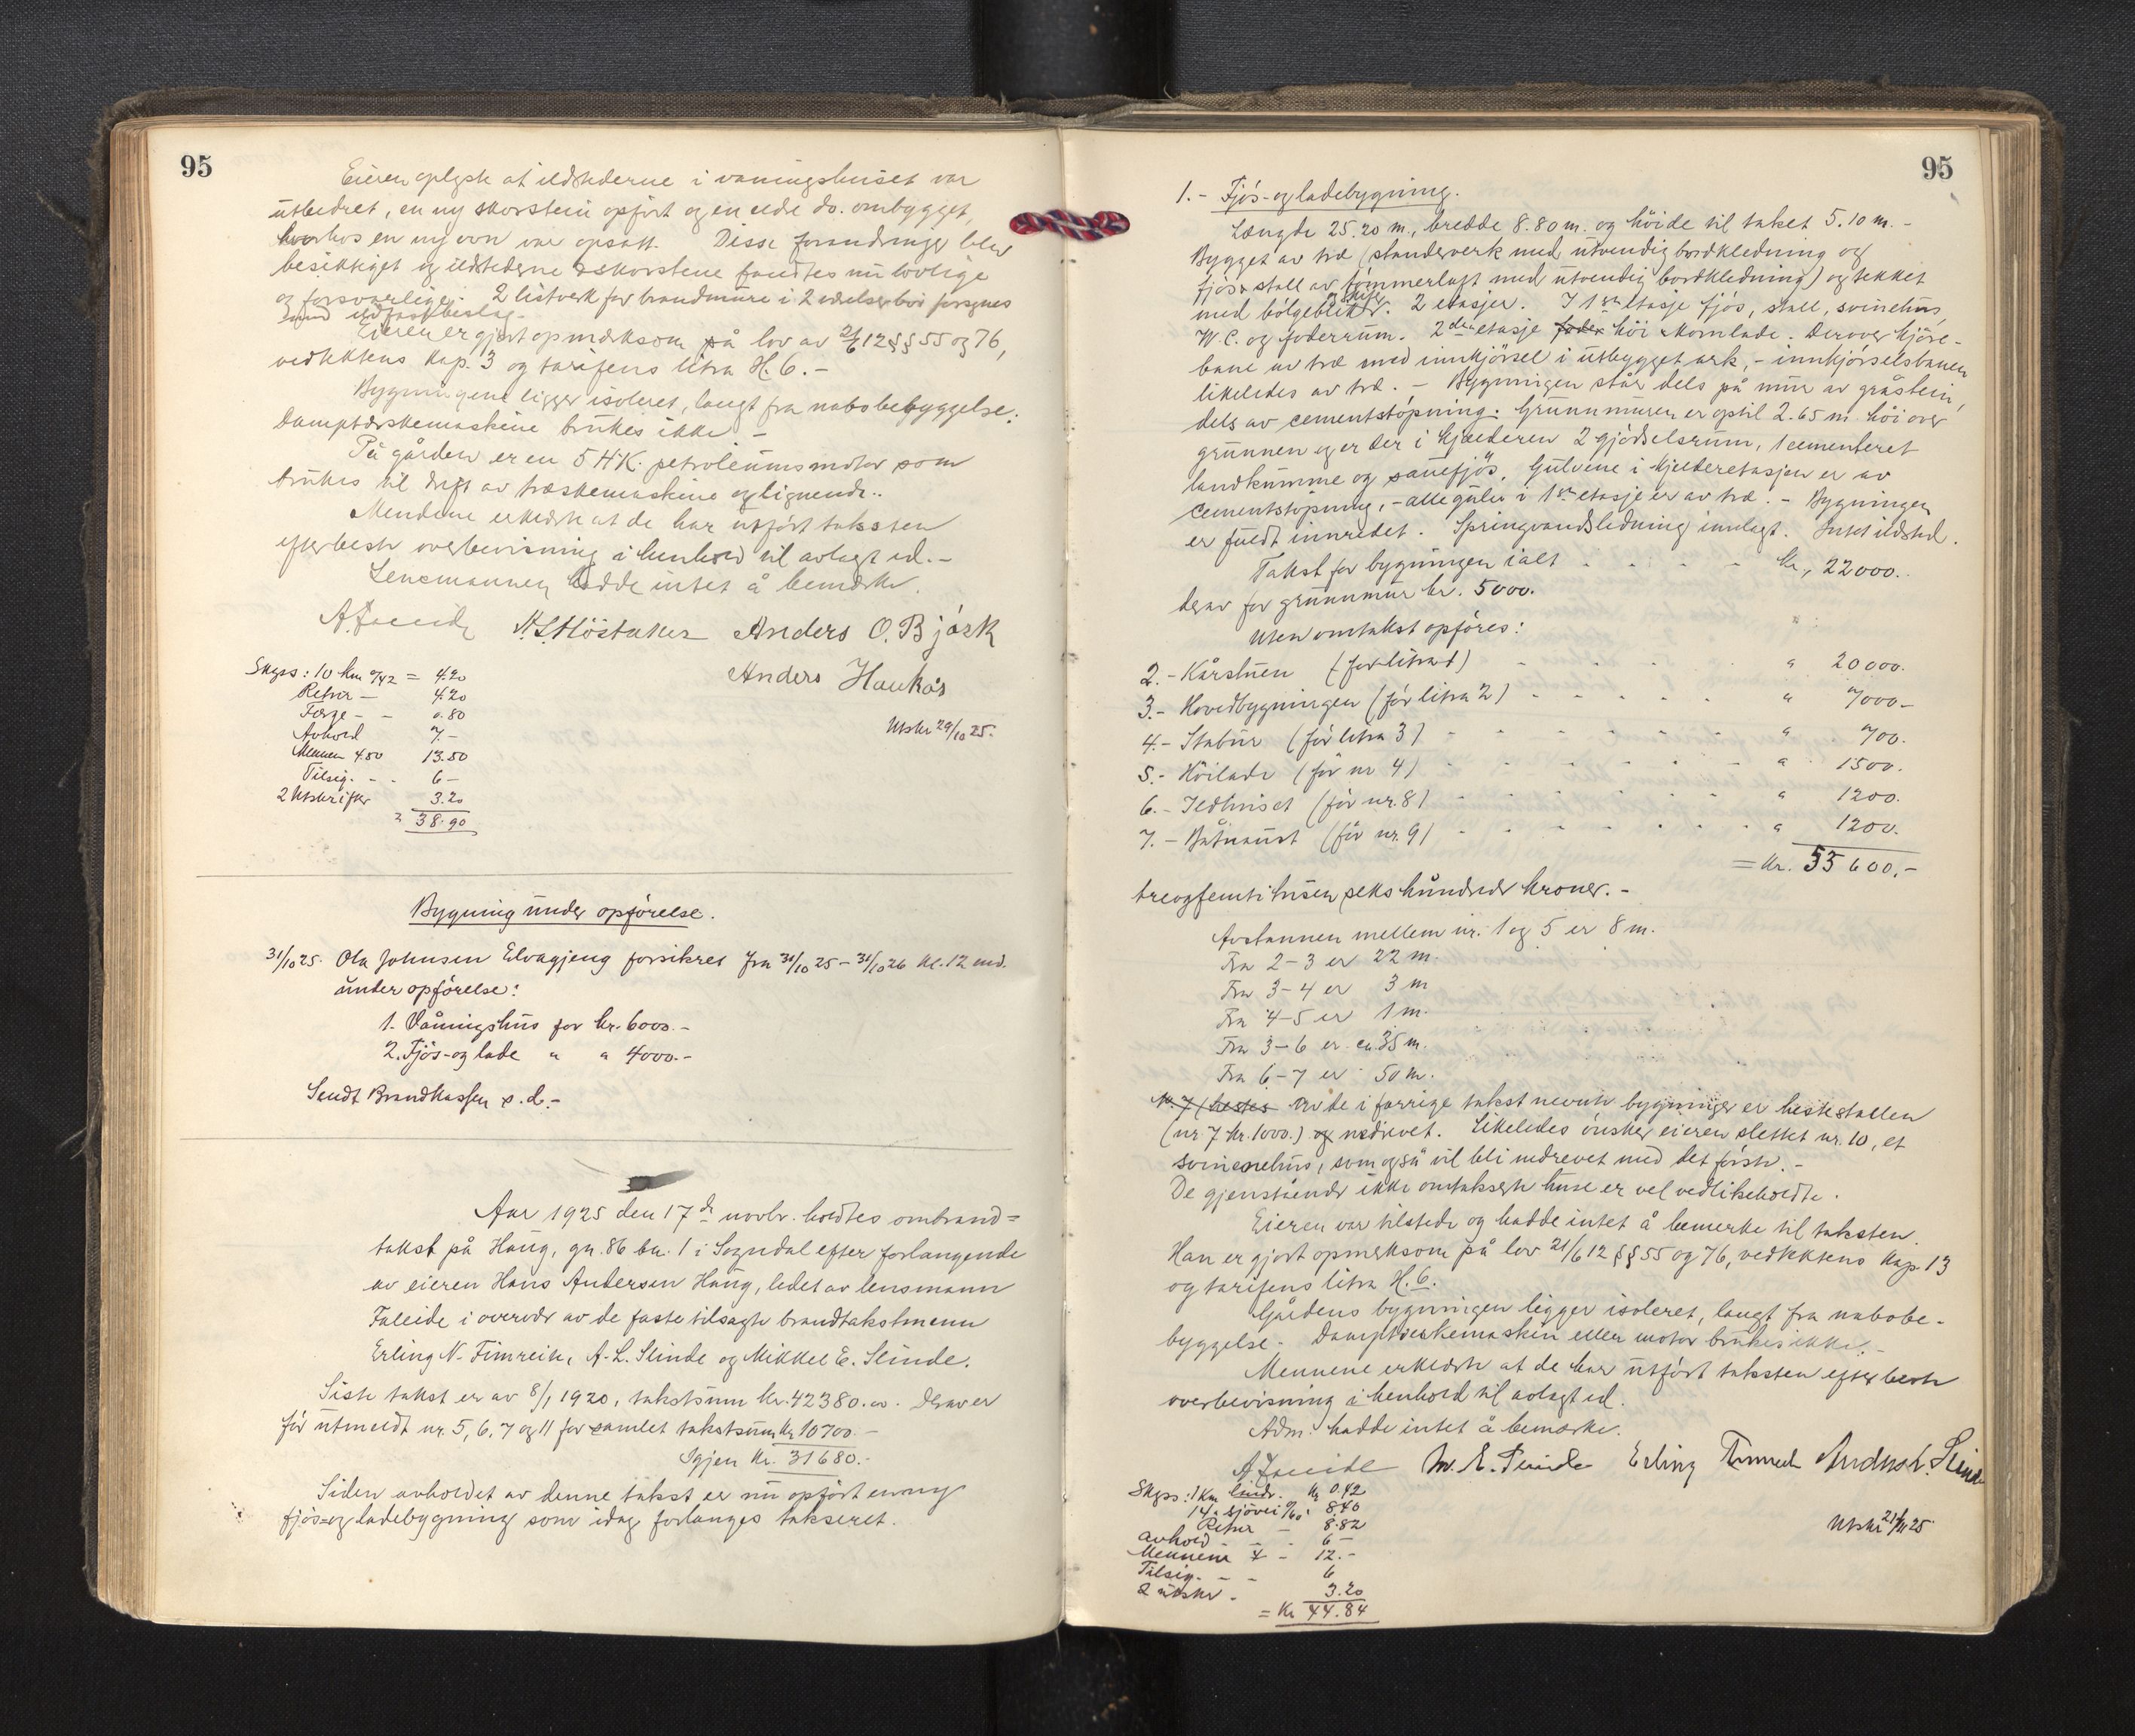 95
Eieren oplyste at ildstederne i vaningshuset var
utbedret, en ny skorstein opført og en eldre do. ombygget,
hvorhos en ny ovn var opsatt. Disse forandringer blev
besiktiget og ildstederne & skorstene fandtes nu lovlige
og forsvarlige. 2 listverk for brandmure i 2 værelser bør forsynes
med ildfast beslag.
Eieren er gjort opmerksom på lov av 21/6 12 §§ 55 og 76,
vedtektens kap. 3 og tarifens litra H. 6. -
Bygningene ligger isoleret, langt fra nabobebyggelse.
Damptærskemaskine brukes ikke -
På gården er en 5 H.K. petroleumsmotor som
brukes til drift av træskemaskine og lignende..
Mendene erklærte at de har utført taksten
efter beste overbevisning i henhold til avlagt ed. -
Lensmannen hadde intet å bemærke.
A. Faleide N. S. Høstaker Anders O. Bjørk
Anders Haukås
Skyss: 10 km a/42 = 4.20
Retur - 4.20
Færge - - 0.80
Avhold 7.-
Mennen 4.50 13.50
Tilsig. - - 6 -
2 Utskrifter 3.20
= 38.90
Utskr 29/10 25.
Bygning under opførelse.
31/10 25. Ola Johnsen Elvagjeng forsikret fra 31/10 25 - 31/10 26 kl. 12 md.
under opførelse:
1. Våningshus for kr. 6000. -
2. Fjøs- og lade " " 4000. -
Sendt Brandkassen s. d. -
Aar 1925 den 17de novbr. holdtes ombrand=
takst på Haug, gn. 86 bn. 1 i Sogndal efter forlangende
av eieren Hans Andersen Haug, ledet av lensmann
Faleide i overvær av de faste tilsagte brandtakstmenn
Erling N. Fimreite, A. L. Slinde og Mikkel E. Slinde.
Siste takst er av 8/1 1920, takstsum kr. 42380.00. Derav er
før utmeldt nr. 5, 6, 7 og 11 for samlet takstsum kr 10700. -
Igjen kr. 31680. -
Siden avholdet av denne takst er nu opført en ny
fjøs= og ladebygning som idag forlanges takseret.
95
1. - Fjøs- og ladebygning.
Længde 25.20 m., bredde 8.80 m. og høide til taket 5.10 m. -
Bygget av træ (standerverk med utvendig bordkledning og
fjøs & stall av tømmerlaft med utvendig bordkledning) og tekket
med bølgeblikk og skifer. 2 etasjer. I 1ste etasje fjøs, stall, svinehus,
W. C. og foderrum. 2den etasje foder høi & kornlade. Derover kjøre-
bane av træ med innkjørsel i utbygget ark, - innkjørselsbanen
likeledes av træ. - Bygningen står dels på mur av gråstein,
dels av cementstøpning. Grunnmuren er optil 2.65 m. høi over
grunnen og er der i kjelderen 2 gjødselsrum, 1 cementeret
landkumme og sauefjøs. Gulvene i kjelderetasjen er av
cementstøpning, - alle gulv i 1ste etasje er av træ. - Bygningen
er fuldt innredet. Springvandsledning innlagt. Intet ildsted.
Takst for bygningen ialt . . . . kr. 22000..
derav for grunnmur kr. 5000.
Uten omtakst opføres:
2. - Kårstuen (før litra 1) . . . . " 20000.
3. - Hovedbygningen (før litra 2) . . . . " 7000 -
4. - Stabur (før litra 3) . . . . " 700.
5. - Høilade (før nr 4) . . . . " 1500.
6. - Ildhuset (før nr. 8) . . . . " 1200.
7. - Båtnaust (før nr. 9) . . . . " 1200.
= kr. 53600, -
treogfemti tusen seks hundrede kroner. -
Avstannen mellem nr. 1 og 5 er 8 m.
Fra 2 - 3 er 22 m.
Fra 3 - 4 er 3 m
Fra 4 - 5 er 1 m.
Fra 3 - 6 er ca. 35 m.
Fra 6 - 7 er 50 m.
Av de i forrige takst nevnte bygninger er hestestallen
(nr 7 kr. 1000.) nedrevet. Likeledes ønsker eieren slettet nr. 10, et
svinehus, som også vil bli nedrevet med det første. -
De gjenstående ikke omtakserte huse er vel vedlikeholdte.
Eieren var tilstede og hadde intet å bemerke til taksten.
Han er gjort opmerksom på lov 21/6 12 §§ 55 og 76, vedtektens kap. 13
og tarifens litra H. 6.
Gårdens bygninger ligger isoleret, langt fra nabobe-
byggelse. Damptærskemaskin eller motor brukes ikke. -
Mennene erklærte at de har utført taksten efter beste
overbevisning i henhold til avlagt ed.
Adm. hadde intet å bemærke.
A. Faleide M. E. Slinde Erling Fimreite Andres L. Slinde
Skyss: 1 km landv. kr 0.42
14 " sjøvei a/60: 8.40
Retur - 8.82
Avhold - - - 6 -
Mennene 4 - 12. -
Tilsig. - - 6
2 utskr - 3.20
= kr 44.84
Utskr 21/11 25